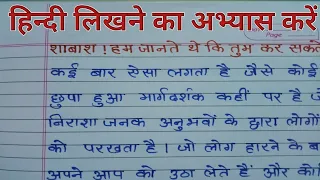 हिन्दी लिखने का अभ्यास करें
Page
शाबाश ! हम जानते थे कि तुम कर सकते
कई बार ऐसा लगता है जैसे कोई
छुपा हुआ मार्गदर्शक कहीं पर है जो
निराशा जनक अनुभवों के द्वारा लोगों
को परखता है। जो लोग हारने के बा
अपने आप को उठा लेते हैं और को